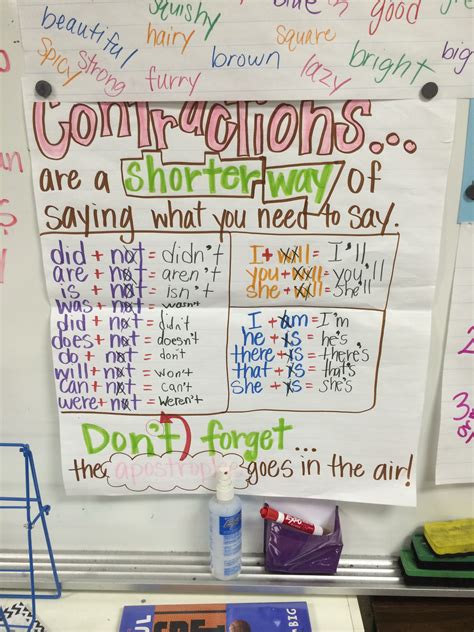 squishy blue good
beautiful hairy square big
spicy strong furry brown lazy bright
Contractions...
are a shorter way of
saying what you need to say.
did + not = didn't
are + not = aren't
is + not = isn't
was + not = wasn't
did + not = didn't
does + not = doesn't
do + not = don't
will + not = won't
can + not = can't
were + not = weren't
I + will = I'll
you + will = you'll
she + will = she'll
I + am = I'm
he + is = he's
there + is = there's
that + is = that's
she + is = she's
Don't forget...
the apostrophe goes in the air!
EXPO
BIG